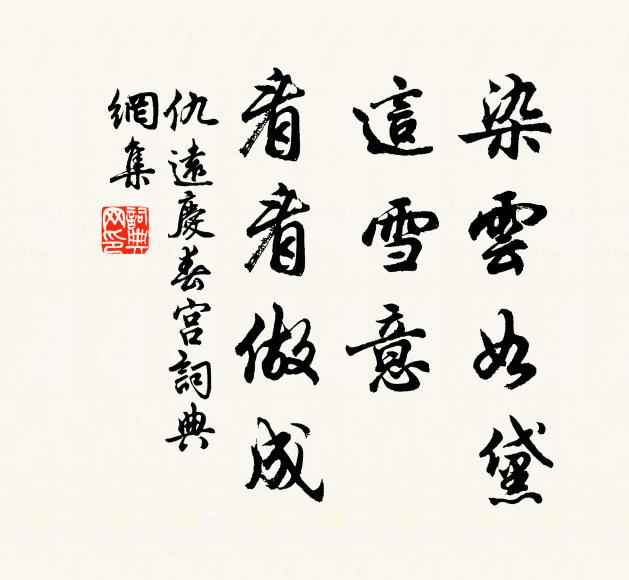 染雲如黛
這雪意
看看做成
仇遠慶春宮詞典
網集
詞典網印